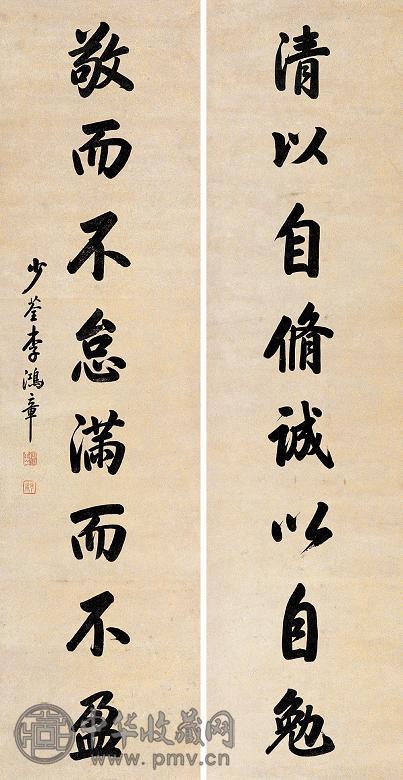 清以自脩誠以自勉
敬而不怠滿而不盈
少荃李鴻章
中华收藏网
www.pmv.cn